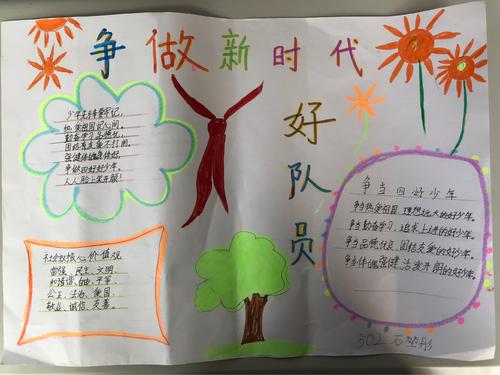 争做新时代
好队员
少年先锋要牢记,
热爱祖国记心间。
勤奋学习
团结友爱不打闹。
强健体魄身体好,
争做四好好少年,
人人脸上笑开颜!
核心价值观
富强、民主、文明、
和谐、自由、平等、
公正、法治、爱国、
敬业、诚信、友善。
争当四好少年
争当热爱祖国、理想远大的好少年。
争当勤奋学习、追求上进的好少年。
争当品德优良、团结友爱的好少年。
争当体魄强健、活泼开朗的好少年。
302 石